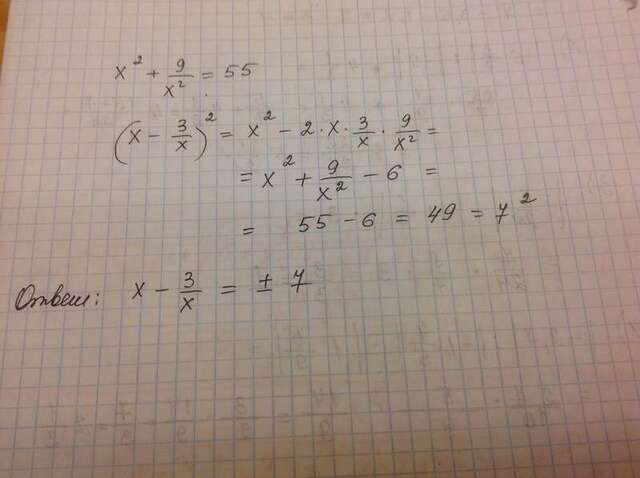 x² + 9/x² = 55
(x - 3/x)² = x² - 2 · x · 3/x · 9/x² =
= x² + 9/x² - 6 =
= 55 - 6 = 49 = 7²
Ответ: x - 3/x = ± 7